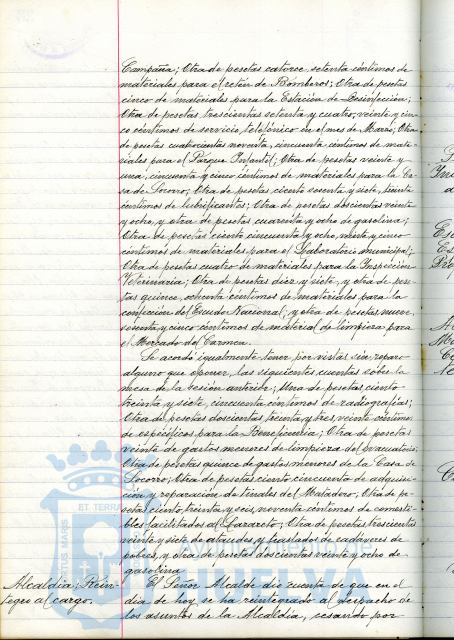 Campaña; Otra de pesetas catorce, setenta céntimos de
materiales para el retén de Bomberos; Otra de pesetas
cinco de materiales para la Estación de Desinfección;
Otra de pesetas trescientas setenta y cuatro, veinte y cin-
co céntimos de servicio telefónico en el mes de Marzo; Otra
de pesetas cuatrocientas noventa, cincuenta céntimos de mate-
riales para el Parque Infantil; Otra de pesetas veinte y
una, cincuenta y cinco céntimos de materiales para la Ca-
sa de Socorro; Otra de pesetas ciento sesenta y siete, treinta
céntimos de lubrificantes; Otra de pesetas doscientas veinte
y ocho, y otra de pesetas cuarenta y ocho de gasolina;
Otra de pesetas ciento cincuenta y ocho, veinte y cinco
céntimos de materiales para el Laboratorio municipal;
Otra de pesetas cuatro de materiales para la Inspección
Veterinaria; Otra de pesetas diez y siete, y otra de pese-
tas quince, ochenta céntimos de materiales para la
confección del Escudo Nacional, y otra de pesetas nueve,
sesenta y cinco céntimos de material de limpieza para
el Mercado del Carmen.
Se acordó igualmente tener por vistas sin reparo
alguno que oponer, las siguientes cuentas sobre la
mesa de la sesión anterior; Una de pesetas ciento
treinta y siete, cincuenta céntimos de radiografías;
Otra de pesetas doscientas treinta y tres, veinte céntimos
de específicos para la Beneficencia; Otra de pesetas
veinte de gastos menores de limpieza del evacuatorio;
Otra de pesetas quince de gastos menores de la Casa de
Socorro; Otra de pesetas ciento cincuenta de adquisi-
ción y reparación de útiles del Matadero; Otra de pe-
setas ciento treinta y seis, noventa céntimos de comesti-
bles facilitados al Lazareto; Otra de pesetas trescientas
veinte y siete de ataúdes y traslados de cadáveres de
pobres, y otra de pesetas doscientas veinte y ocho de
gasolina.
Alcaldía: Rein-
tegro al cargo.
El Señor Alcalde dió cuenta de que en el
día de hoy se ha reintegrado al despacho de
los asuntos de la Alcaldía, cesando por
ET TERRA